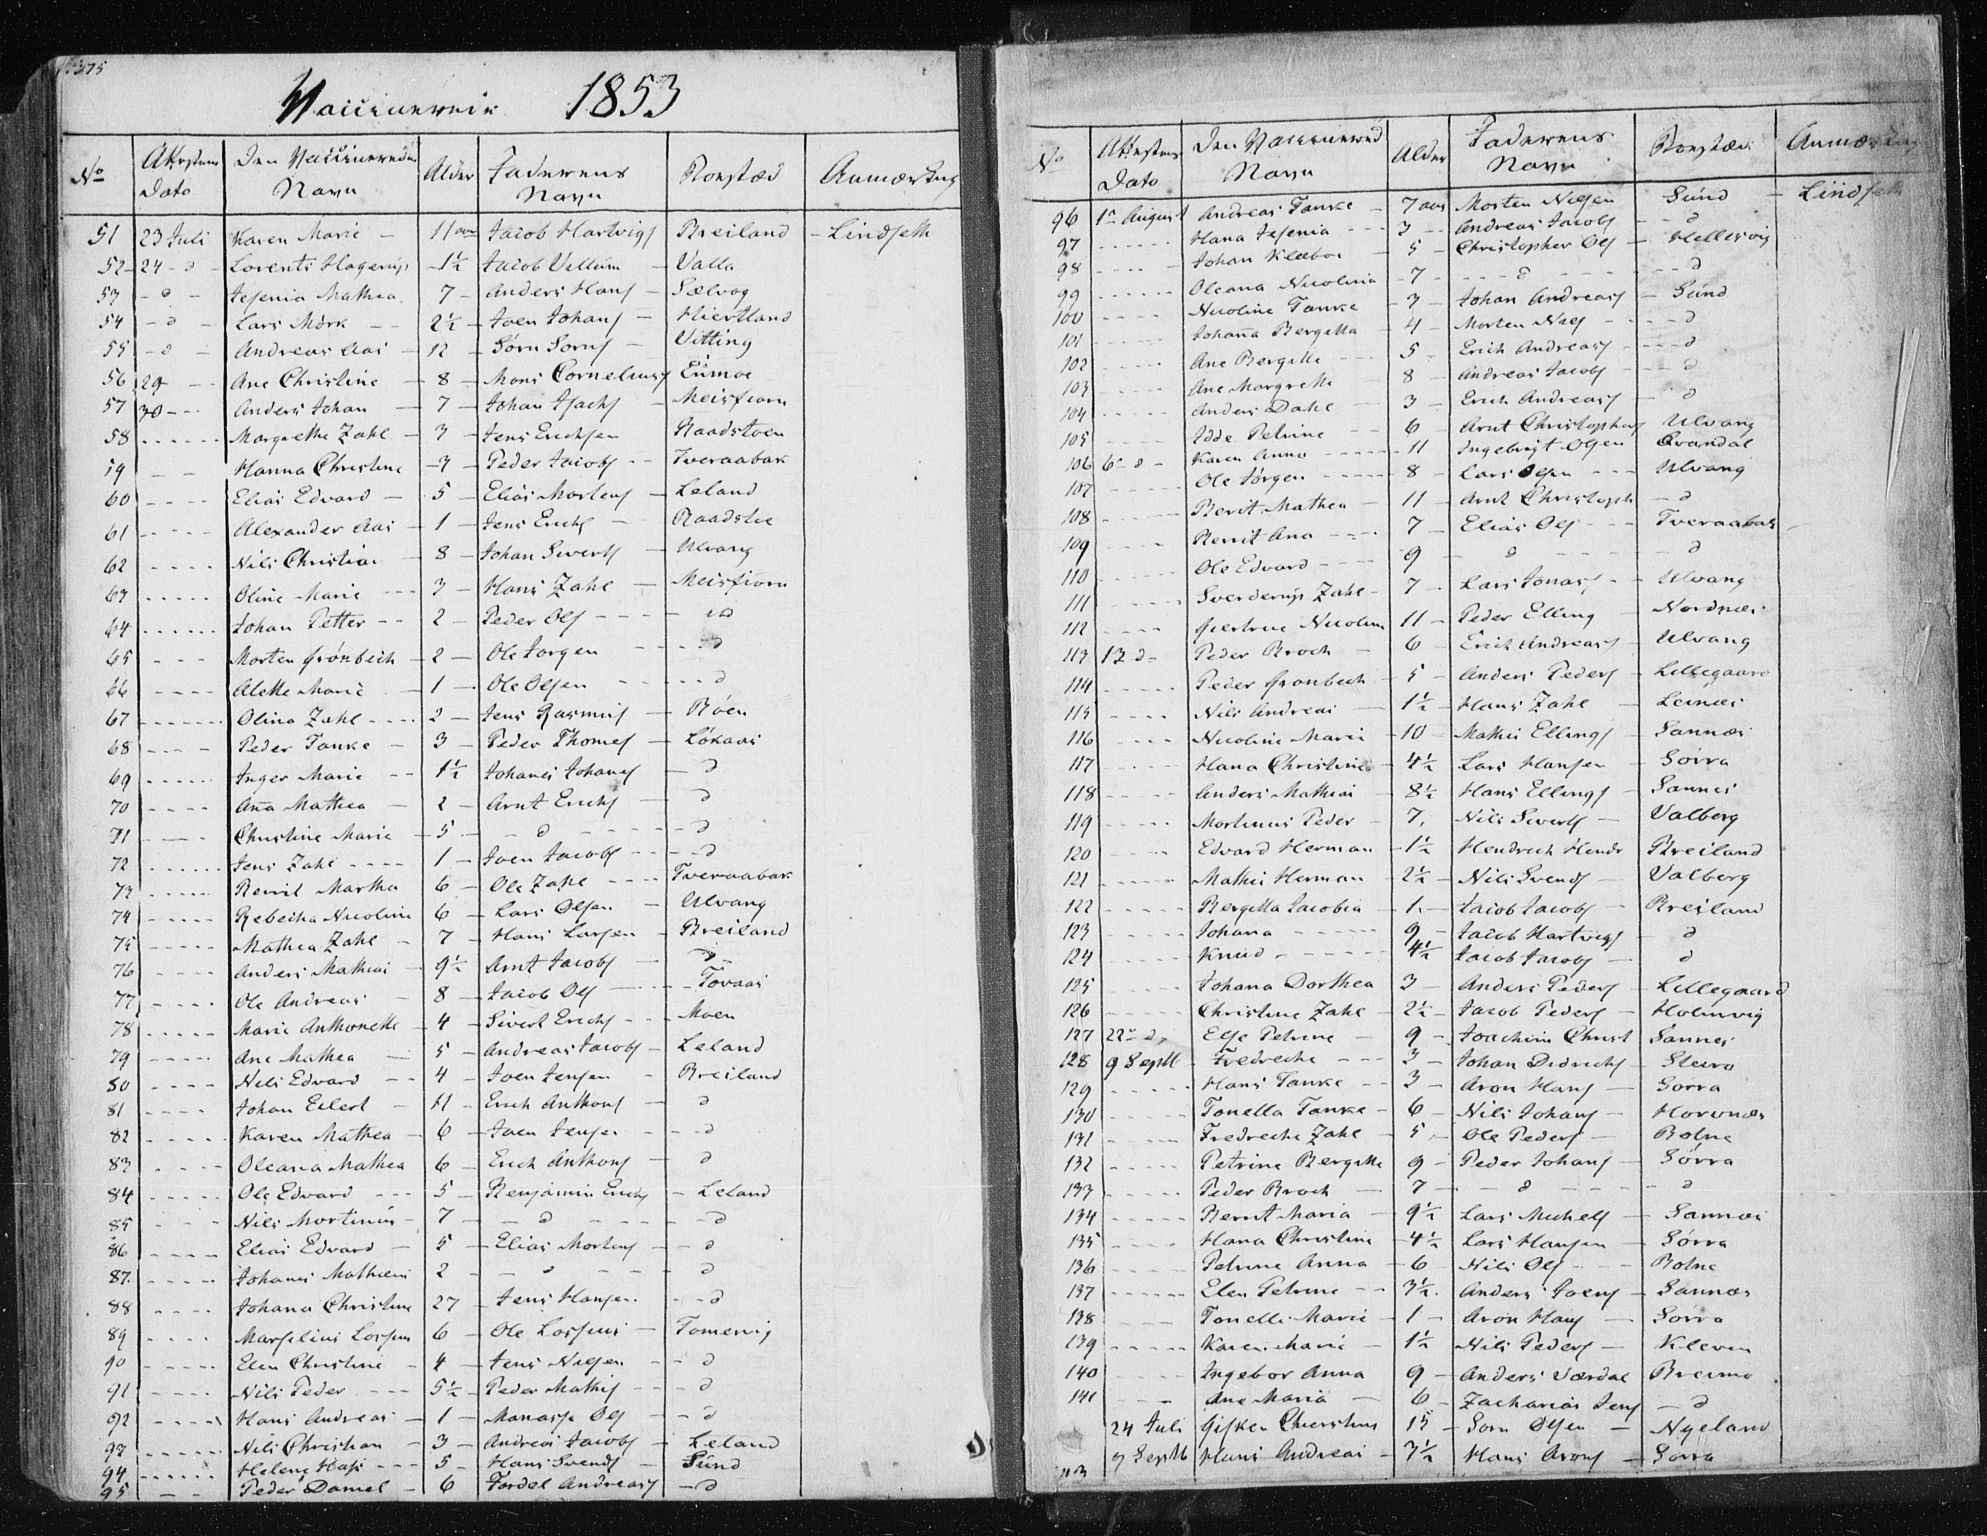 375
Vaccinerede 1853
No Attestens Dato Den Vaccineredes Navn Alder Faderens Navn Boestæd Anmærkng
51 23 Juli Karen Marie - 11 aar Jacob Hartvigs Breiland - Lindseth
52 24 - d - Lorents Hagerup - 1½ Jacob Vellum - Valla
53 - d - Jesenia Mathea 7 - Anders Hans - Sælvog
54 - d - Lars Mörk - - 2½ - Joen Johans - Hiertland
55 - d - Andreas Aas - 12 - Sörn Sorns - Vitting
56 29 - - Ane Christine - 8 - Mons Cornelius
57 30 - - Anders Johan - 7 - Johan Isachs - Meisfiorn
58 - - - Margrethe Zahl - 3 - Jens Erichsen Raadstoen
59 - - Hanna Christine - 3 - Peder Jacobs - - Tveraabak
60 - - - Elias Edvard - 5 - Elias Mortens - Leland
61 - - - Alexander Aas - 1 - Jens Erichs - Raadstoe
62 - - - Nils Christian - 8 - Johan Siverts - Ulvang
63 - - - Oline Marie - - - 3 - Hans Zahl - Meisfiorn
64 - - - Johan Petter - - 2 - Peder Ols - - - - d
65 - - - Morten Grönbech - 2 - Ole Jorgen - - - d
66 - - - Alette Marie - 1 - Ole Olsen - - - - d
67 - - - Olina Zahl - - - 2 - Jens Rasmus - Röen
68 - - - Peder Tanke - 3 - Peder Thomes - Lökaas
69 - - - Inger Marie - - 1½ Johanes Johans - d
70 - - - Ana Mathea - 2 - Arnt Erichs - d
71 - - - Christine Marie - 5 - - d - - - d
72 - - - Jens Zahl - - - 1 - Joen Jacobs - - - d
73 - - - Berrit Martha 6 - Ole Zahl - - - Tveraabak
74 - - - Rebecka Nicoline 6 - Lars Olsen - Ulvang
75 - - - Mathea Zahl - 7 - Hans Larsen - Breiland
76 - - - Anders Mathias - 9½ Arnt Jacobs - - d
77 - - - Ole Andreas - 8 - Jacob Ols - - - Tovaas
78 - - - Marie Anthonette - 4 - Sivert Erichs - - Moen
79 - - - Ane Mathea - 5 - Andreas Jacobs - Leland
80 - - - Nils Edvard - - 4 - Joen Jensen - Breiland
81 - - - Johan Eilert - 11 - Erich Anthons - d
82 - - - Karen Mathea - 6 - Joen Jensen - - d
83 - - - Oleana Mathea 6 - Erich Anthons - d
84 - - - Ole Edvard - - - 5 - Benjamin Erichs - Leland
85 - - - Nils Mortinus - 7 - - d - - - - d
86 - - - Elias Edvard - 5 - Elias Mortens - - d
87 - - - Johanes Mathiem 2 - - d - - - d
88 - - - Johana Christine 27 - Jens Hansen - - d
89 - - - Marselius Lossius 6 - Ole Lossius - Tomervig
90 - - - Elen Christine - 4 - Jens Nilsen - - d
91 - - - Nils Peder - - - 5½ - Peder Mathis - - d
92 - - - Hans Andreas - 1 - Manasse Ols - - d
93 - - - Nils Christian - 3 - Andreas Jacobs - Leland
94 - - - Helene Hass - - - 5 - Hans Svends - Sund
95 - - Peder Daniel - 6 Fordel Andreass - d
No Attestens Dato Den Vaccinered Navn Alder Faderens Navn Boestæd Anmærkng
96 1ste August Andreas Tanke - 7 aar Morten Nilsen Sund - Lindseth
97 - - - Hana Jesenia - - - 3 - Andreas Jacobs - d
98 - - - Johan Klæboe - 5 - Christopher Ols - Hellesvig
99 - - - Oleana Nicolina - 7 - - - d - - - d
100 - - - Nicoline Tanke - 3 - Johan Andreass - Sund
101 - - - Johana Bergitta - 4 - Morten Nils - - - d
102 - - - Ane Bergitte - - - 5 - Erich Andreass - - - d
103 - - - Ane Margrethe - 8 - Andreas Jacobs - d
104 - - - Anders Dahl - - - 3 - Erich Andreass - d
105 - - - Idde Petrine - - - 6 - Arnt Christophers Ulvang
106 6te d - Karen Anna - - - 11 Ingebrigt Olsen Qvandal
107 - - - Ole Jörgen - - - 8 - Lars Olsen - - - Ulvang
108 - - - Berit Mathea - 11 - Arnt Christoph - d
109 - - - Berrit Ana - - - 7 - Elias Ols - - - Tveraabak
110 - - - Ole Edvard - - - 9 - d - - - d
111 - - - Sverderup Zahl - 7 - Lars Jonass - - Ulvang
112 - - - Giertrue Nicolina 11 - Peder Elling - Nordnæs
113 13 d - Peder Broch - 6 - Erich Andreass - Ulvang
114 - - - Peder Grönbech - 5 - Anders Peders - Lillegaard
115 - - - Nils Andreas - 1½ - Hans Zahl - Leinæs
116 - - - Nicoline Marie - 10 - Mathis Ellings - Sannæs
117 - - - Hana Christine - 4½ - Lars Hansen - Sörra
118 - - - Anders Mathias - 8½ - Hans Ellings - Sannes
119 - - - Mortinus Peder - 7. - Nils Siverts - Valberg
120 - - - Edvard Herman - 1½ - Hendrich Hendr Breiland
121 - - - Mathis Herman - 2½ - Nils Svends - Valberg
122 - - - Bergitta Jacobia - 1. - Jacob Jacobs - Breiland
123 - - - Johana - - - 9 - Jacob Hartvigs - d
124 - - - Knud - - - 4½ Jacob Jacobs - d
125 - - - Johana Dorthea 3 - Anders Peders - Lillegaard
126 - - - Christine Zahl - 2½ - Jacob Peders - Holmvig
127 22de d. Else Petrine - 9 - Joachim Christ Sannes
128 9 Septb - Fredreche - - - 3 - Johan Didrichs - Steiro
129 - - - Hans Tanke - - 3 - Aron Hans - Sorra
130 - - - Tonella Tanke - 6 - Nils Johans - Hovnæs
131 - - - Fredreche Zahl - 5 - Ole Peders - Bolne
132 - - - Petrine Bergitte 9 - Peder Johans - Sörra
133 - - - Peder Broch - 7 - - d - - - d
134 - - - Berrit Maria - 9½ - Lars Michels - Sannæs
135 - - - Hana Christine - 4½ - Lars Hansen - Sörra
136 - - - Petrine Anna - 6 - Nils Ols - - Bolne
137 - - - Elen Petrine - - 3½ - Anders Joens - Sannæs
138 - - Tonelle Marie - 1 - Aron Hans - Sorra
139 - - - Karen Marie - 1½ - Nils Peders - Kleven
140 - - - Ingebor Anna - 9 - Anders Værdal Breimo
141 - - Ane Maria - - 6 - Zacharias Jens - d
24 Juli Gisken Chirstine 15 - Sorn Olsen - Nyeland
9 Septb Hans Andreas - 3½ - Hans Arons - Sorra